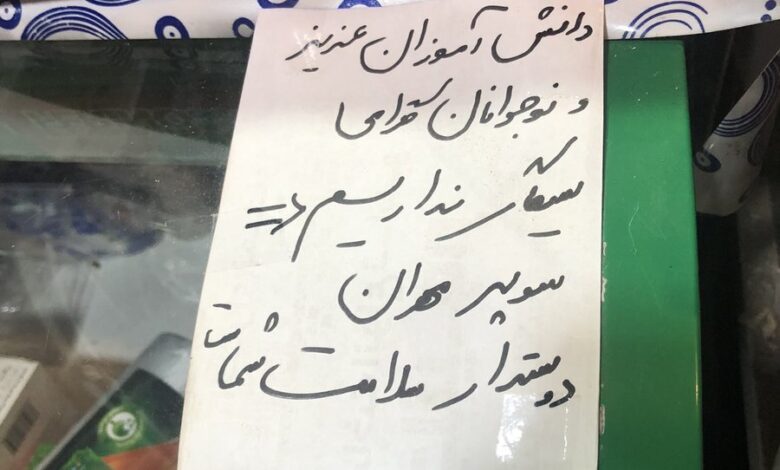 دانش آموزان عزیز
و نوجوانان گرامی
سیگار نداریم =>
سوپر مهران
دوستدار سلامت شماست